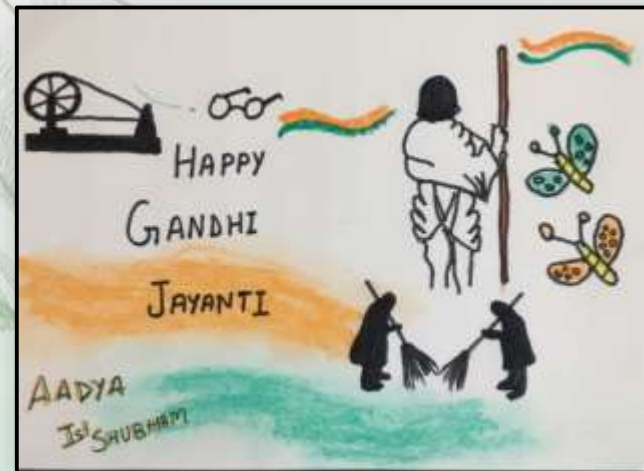 HAPPY
GANDHI
JAYANTI
AADYA
Ist SHUBHAM